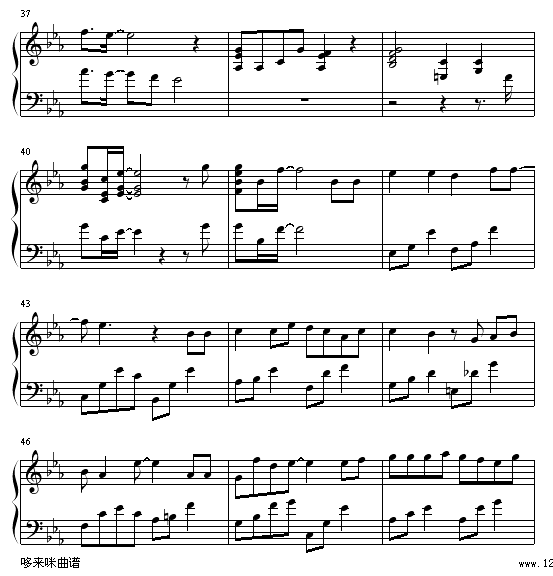 37
40
43
46
哆来咪曲谱
www.12